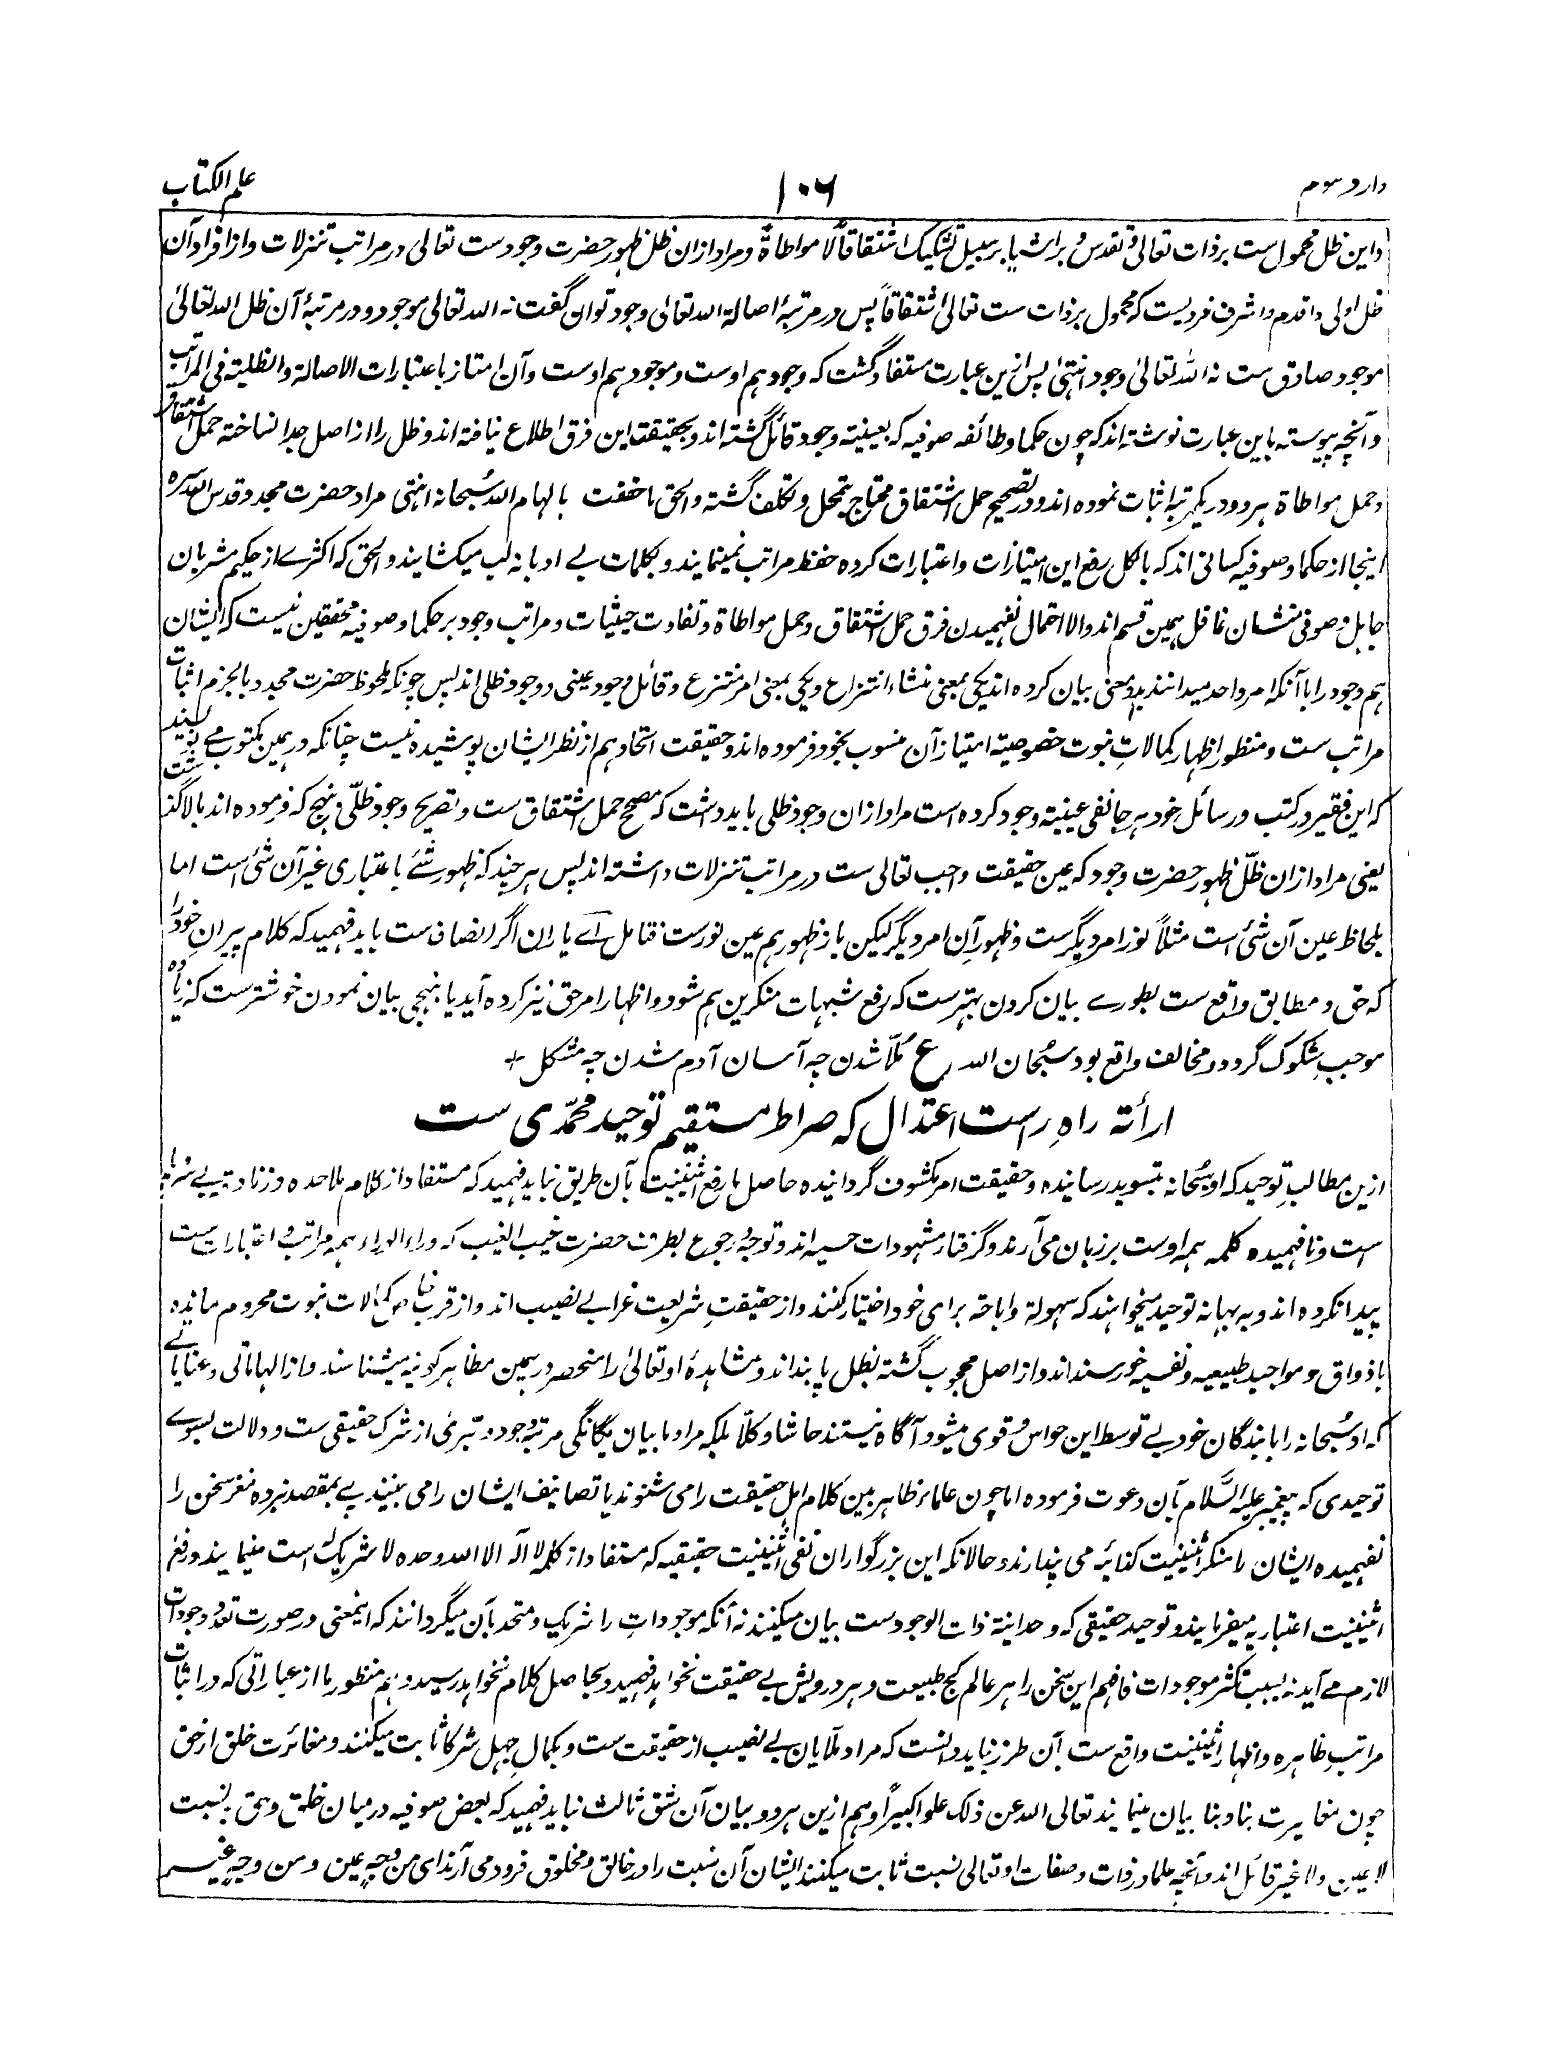 وارد سوم
۱۰۶
علم الکتاب
و این ظل محمول ست بر ذات تعالی و تقدس و بر اشیا بر سبیل تشکیک اشتقاقاً لا مواطاةً و مراد ازان ظل ظهور حضرت وجود ست تعالی در مراتب تنزلات و از افراد آن
ظل اولی و اقدم و اشرف فردیست که محمول بر ذات ست تعالی اشتقاقاً پس در مرتبهٔ اصالة الله تعالی وجود توان گفت نه الله تعالی موجود و در مرتبهٔ آن ظل الله تعالیٰ
موجود صادق ست نه الله تعالیٰ وجود انتهیٰ پس ازین عبارت مستفاد گشت که وجود هم اوست و موجود هم اوست و آن امتیاز باعتبارات الاصالة و الظلیة فی المراتب
و آنچه پیوسته باین عبارت نوشته اند که چون حکما و طائفه صوفیه که بعینیة وجود قائل گشته اند و بحقیقت این فرق اطلاع نیافته اند و ظل را از اصل جدا نساخته حمل اشتقاق
و حمل مواطاة هر دو در یکمرتبه اثبات نموده اند و در تصحیح حمل اشتقاق محتاج بتمحل و تکلف گشته و الحق ما حققت بالهام الله سبحانه انتهی مراد حضرت مجدد قدس الله سره
اینجا از حکما و صوفیه کسانی اند که بالکل رفع این امتیازات و اعتبارات کرده حفظ مراتب نمینمایند و بکلمات بے ادبانه لب میکشایند و الحق که اکثرے از حکیم مشربان
جاهل و صوفی منشان غافل همین قسم اند و الا احتمال نفهمیدن فرق حمل اشتقاق و حمل مواطاة و تفاوت حیثیات و مراتب وجود بر حکما و صوفیه محققین نیست که ایشان
هم وجود را با آنکه امر واحد میدانند بدو معنی بیان کرده اند یکی بمعنی منشاء انتزاع و یکی بمعنی امر منتزع و قائل وجود عینی و وجود ظلی اند لیس چونکه ملحوظ حضرت مجدد بالجزم اثبات
مراتب ست و منظور اظهار کمالاتِ نبوت خصوصیة امتیاز آن منسوب بخود فرموده اند و حقیقت اتحاد هم از نظر ایشان پوشیده نیست چنانکه در همین مکتوب مے نویسند
که این فقیر در کتب و رسائل خود هر جا نفی عینیة وجود کرده است مراد ازان وجود ظلی باید داشت که مصحح حمل اشتقاق ست و تصریح وجود ظلّی بنهجی که فرموده اند بالا گذشت
یعنی مراد ازان ظلّ ظهور حضرت وجود که عین حقیقت واجب تعالی ست در مراتب تنزلات داشته اند پس هر چند که ظهور شئے باعتباری غیر آن شئ است اما
بلحاظ عین آن شئ است مثلاً نور امر دیگرست و ظهور آن امر دیگر لیکن باز ظهور هم عین نورست فتامل اے یاران اگر انصاف ست باید فهمید که کلام پیران خود را
که حق و مطابق واقع ست بطورے بیان کردن بهترست که رفع شبهات منکرین هم شود و اظهار امر حق نیز کرده آید یا بنهجی بیان نمودن خوشترست که زیاده
موجب شکوک گردد و مخالف واقع بود سبحان الله ع مُلّا شدن چه آسان آدم شدن چه مشکل +
ارأئة راهِ راست اعتدال که صراط مستقیم توحید محمّدی ست
ازین مطالب توحید که او سبحانه بتسوید رسانیده و حقیقت امر مکشوف گردانیده حاصل ما رفع اثنینیت بآن طریق نباید فهمید که مستفاد از کلام ملاحده و زنادقه بے سر و پا
است و نا فهمیده کلمه همه اوست بر زبان می آرند و گرفتار مشهودات حسیه اند و توجه و رجوع بطرف حضرت غیب الغیب که وراء الوراء همه مراتب و اعتبارات ست
پیدا نکرده اند و به بهانه توحید میخواهند که سهولة و اباحة برای خود اختیار کنند و از حقیقتِ شریعت غرا بے نصیب اند و از قرب کمالات نبوت محروم مانده
باذواق و مواجید طبیعیه و نفسیه خورسند اند و از اصل محجوب گشته بظل پابند اند و مشاهدهٔ او تعالیٰ را منحصر در همین مظاهر کونیه میشناسند و از الهاماتی و عنایاتے
که او سبحانه را با بندگان خود بے توسط این حواس و قوی میشود آگاه نیستند حاشا و کلّا بلکه مراد ما بیان یگانگی مرتبهٔ وجود و تبرّی از شرک حقیقی ست و دلالت بسوے
توحیدی که پیغمبر علیه السَّلام بآن دعوت فرموده اما چون علماء ظاهر بین کلام اهل حقیقت را می شنوند یا تصانیف ایشان را می بینند پے بمقصد نبرده مغز سخن را
نفهمیده ایشان را منکر اثنینیت کذائیه می پندارند و حالانکه این بزرگواران نفی اثنینیت حقیقیه که مستفاد از کلمه لا اله الا الله وحده لا شریک له است مینمایند و رفع
اثنینیت اعتباریه میفرمایند و توحید حقیقی که وحدانیة ذات الوجود ست بیان میکنند نه آنکه موجودات را شریک و متحد بآن میگردانند که اینمعنی در صورت تعدد وجودات
لازم مے آید نه بسبب تکثر موجودات فافهم این سخن را هر عالم کج طبیعت و هر درویش بے حقیقت نخواهد فهمید و بحاصل کلام نخواهد رسید و هم منظور ما از عباراتی که در اثبات
مراتب ظاهره و اظهار اثنینیت واقع ست بآن طرز نباید دانست که مراد ملّایان بے نصیب از حقیقت ست و بکمال جهل شرکا ثابت میکنند و مغائرت خلق از حق
چون مغایرت بنا و بنا بیان مینمایند تعالی الله عن ذلک علواً کبیراً و هم ازین هر دو بیان آن شق ثالث نباید فهمید که بعض صوفیه درمیان خلق و حق نسبت
لا عین و لا غیر قائل اند و آنچه علما در ذات و صفات او تعالی نسبت ثابت میکنند ایشان آن نسبت را در خالق و مخلوق فرود می آرند ای من وجهٍ عین و من وجهٍ غیر